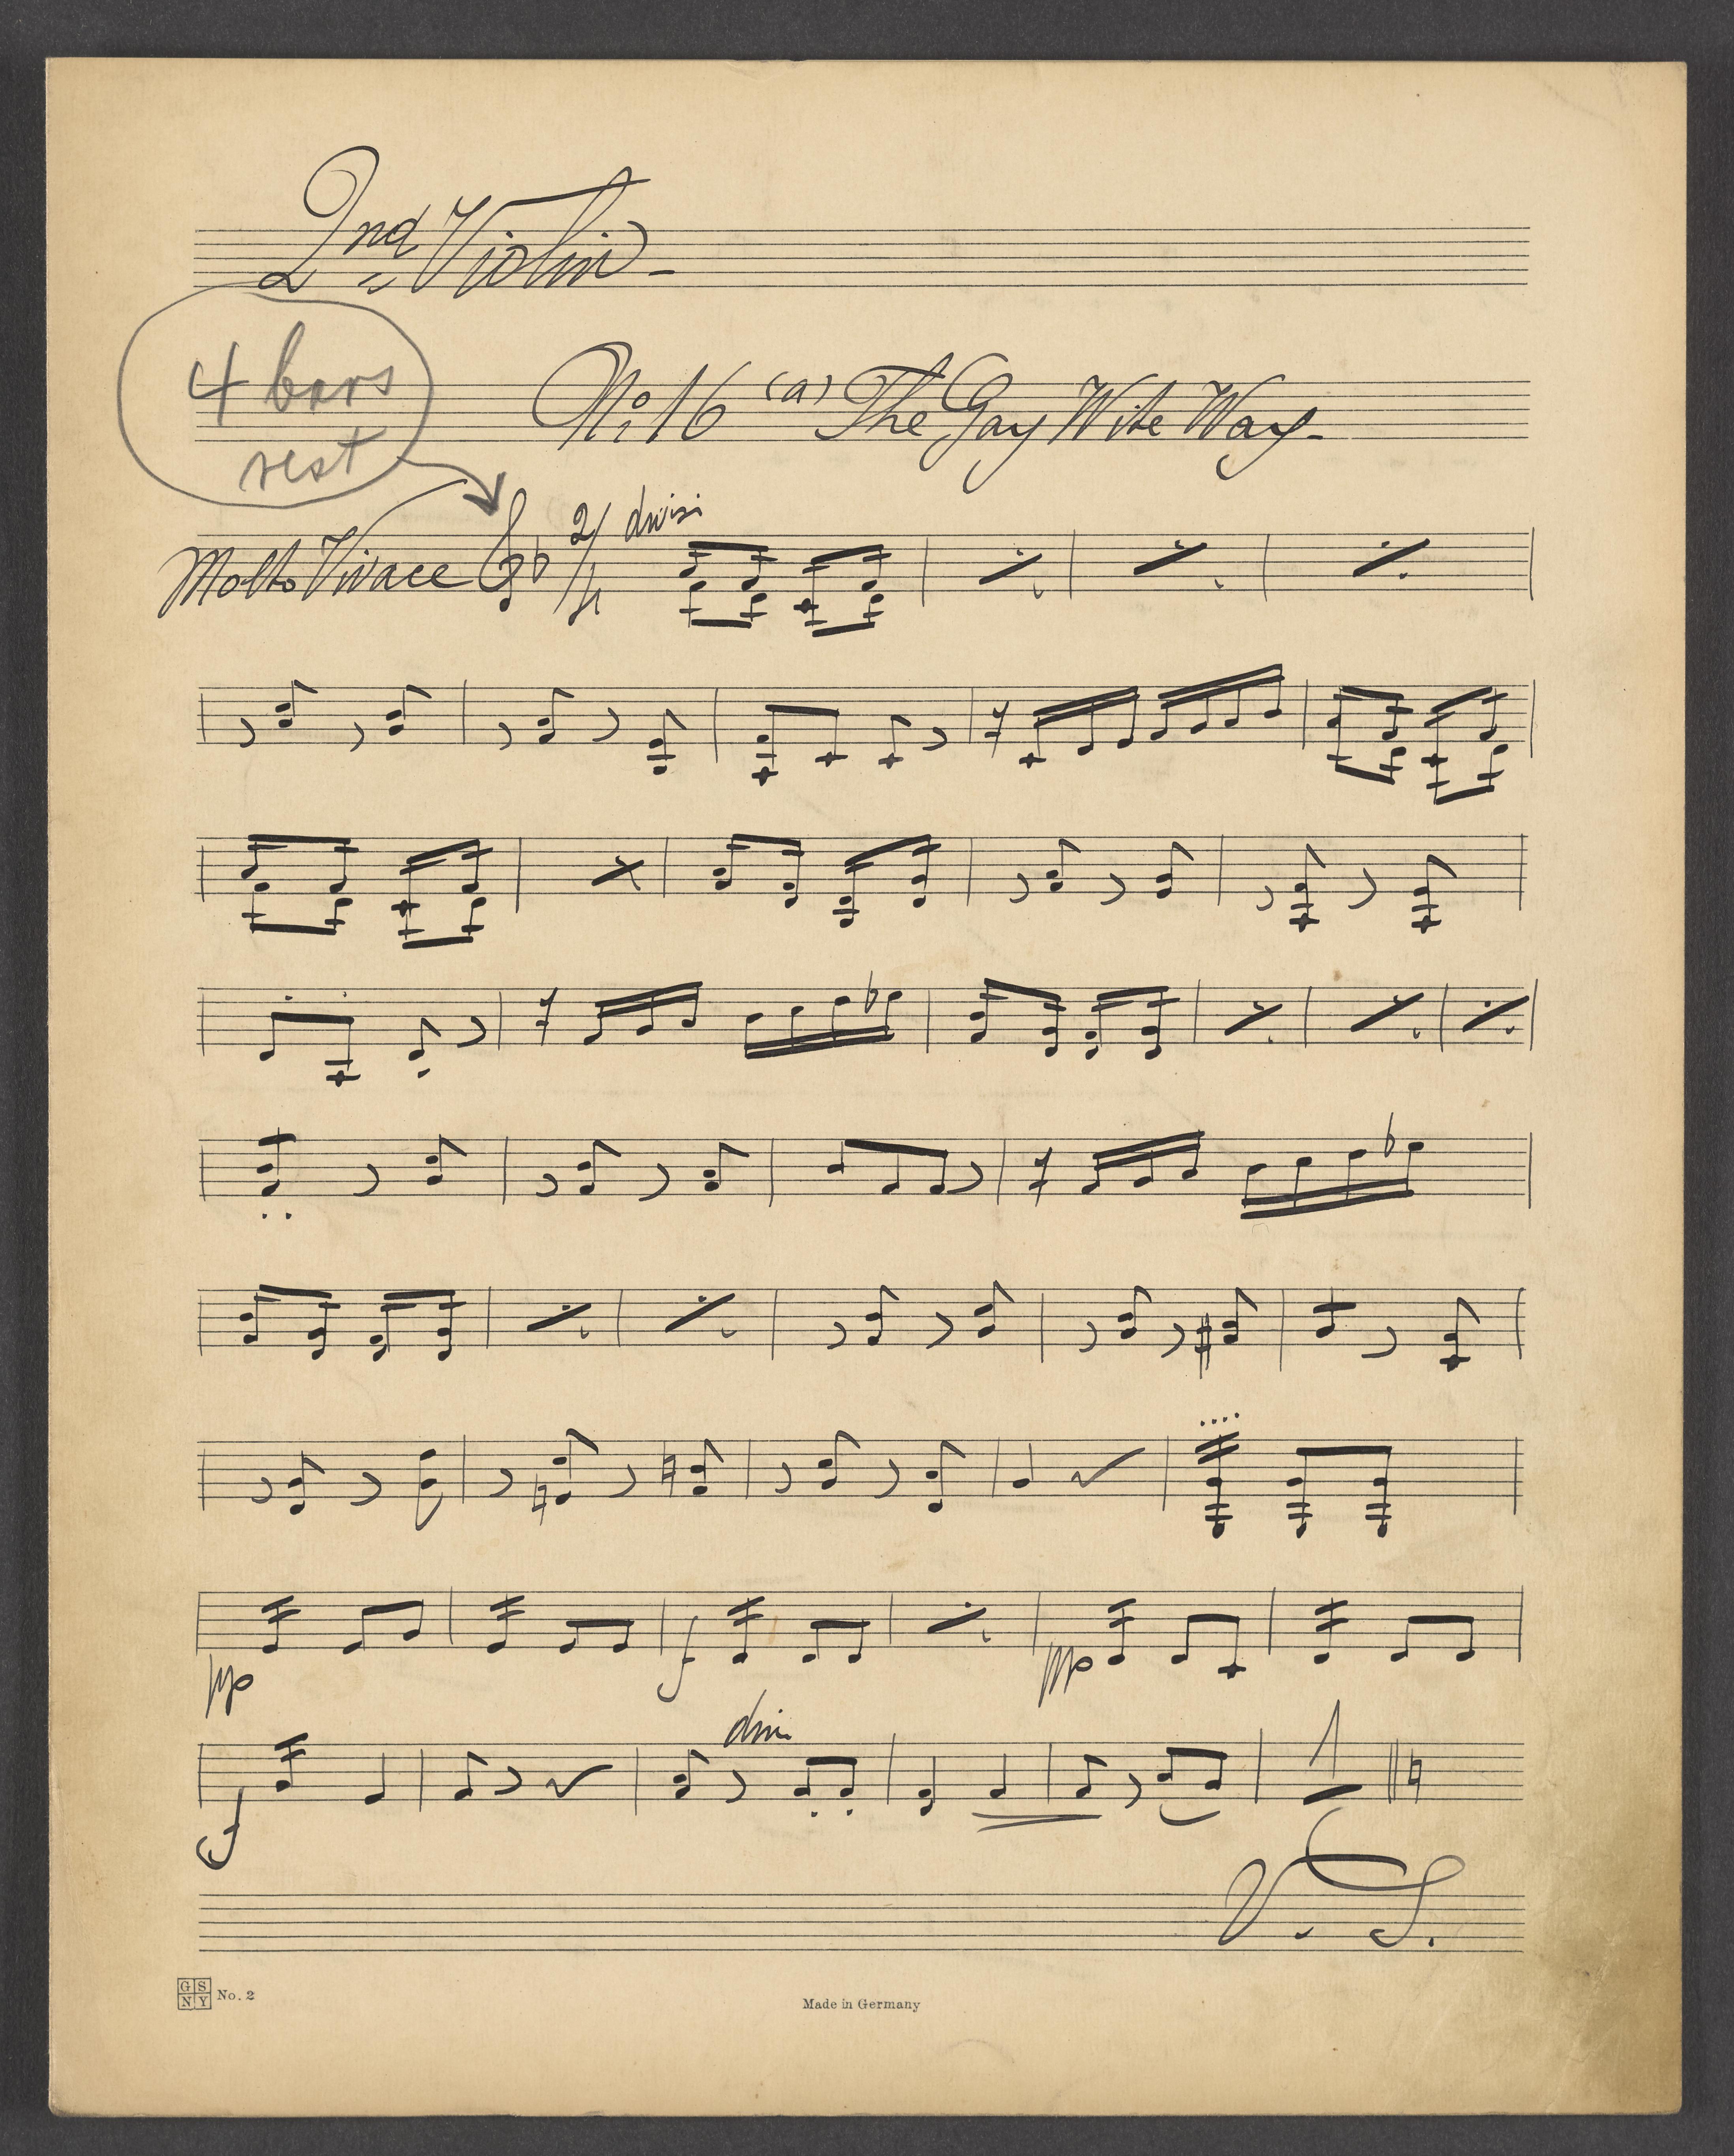 2nd Violin -
4 bars
rest
No. 16 (a) The Gay Wite Way -
Molto Vivace 2/4 divisi
pp f pp
div
f
V. S.
GS
NY No. 2
Made in Germany